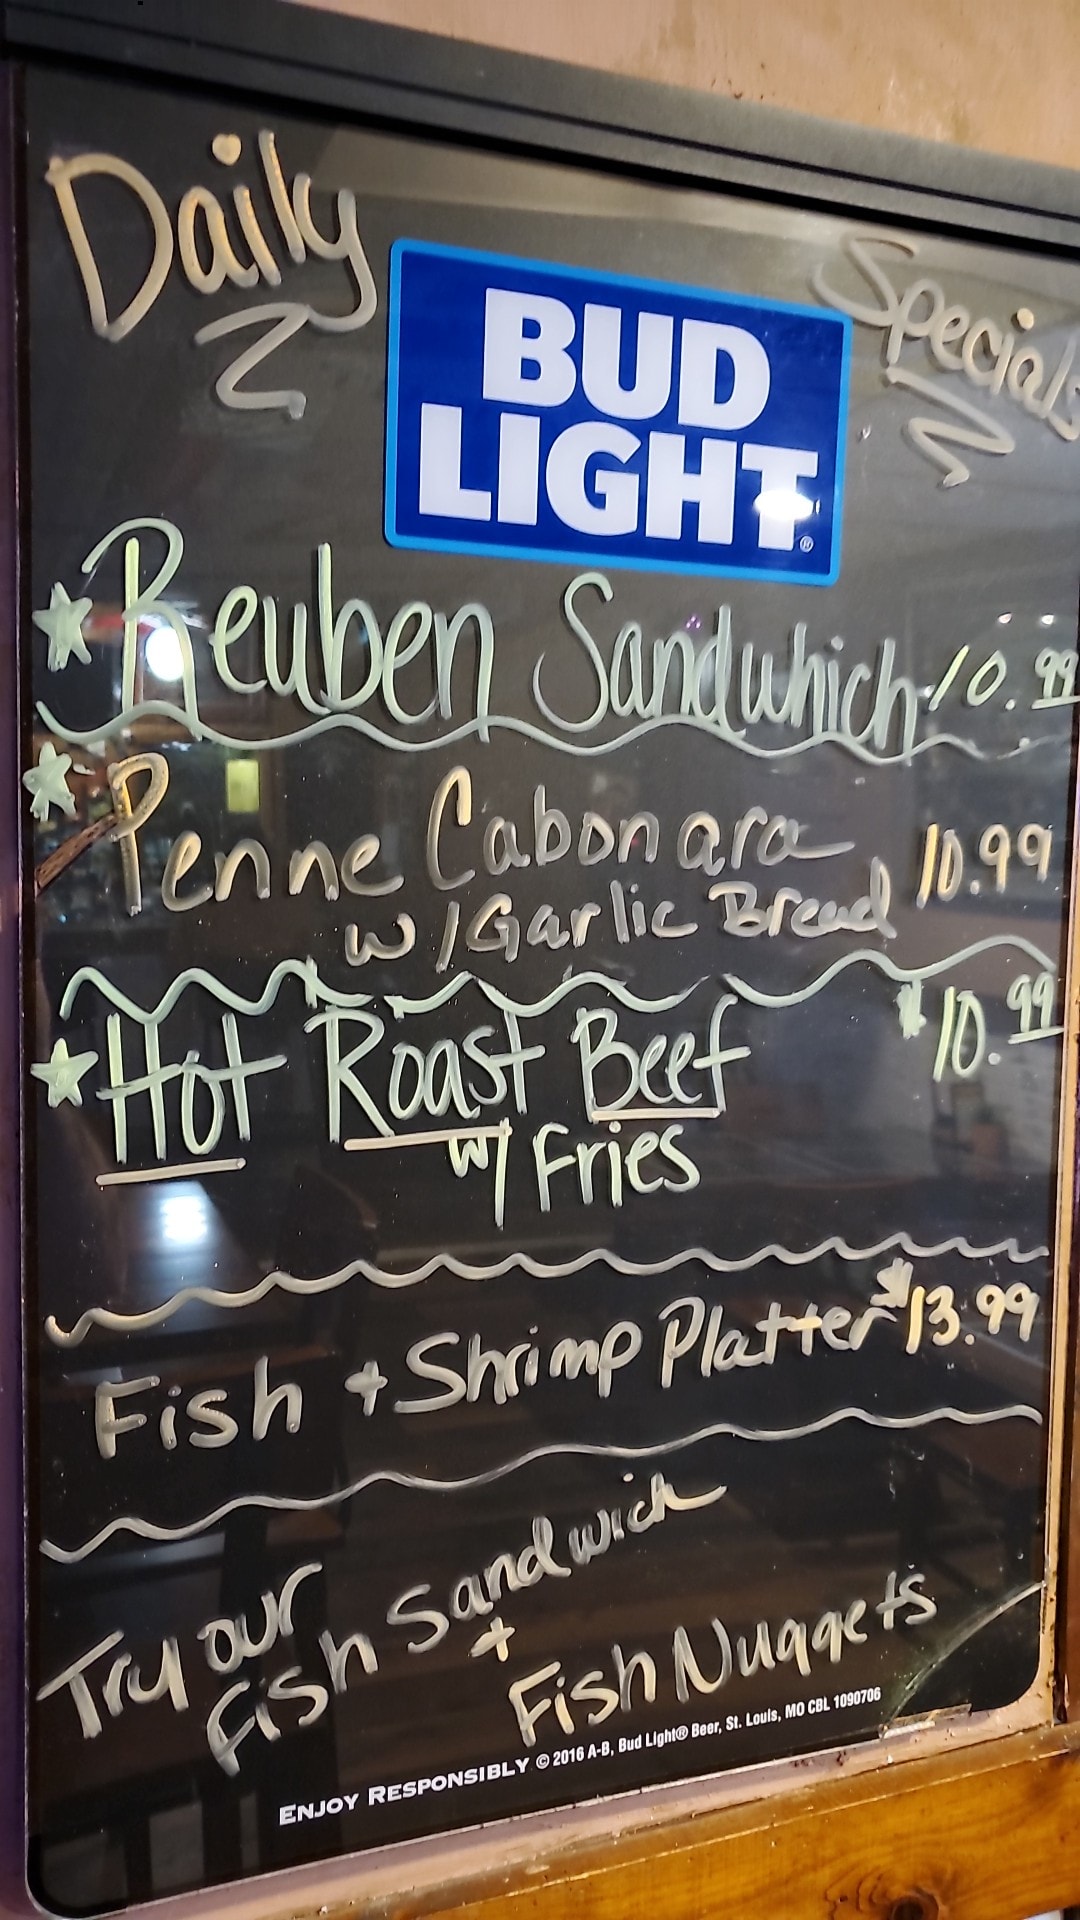 Daily Specials
BUD
LIGHT®
Reuben Sandwhich 10.99
Penne Cabonara 10.99
w/Garlic Bread
Hot Roast Beef $10.99
w/ Fries
Fish + Shrimp Platter $13.99
Try our
Fish Sandwich
+
Fish Nuggets
ENJOY RESPONSIBLY © 2016 A-B, Bud Light® Beer, St. Louis, MO CBL 1090706